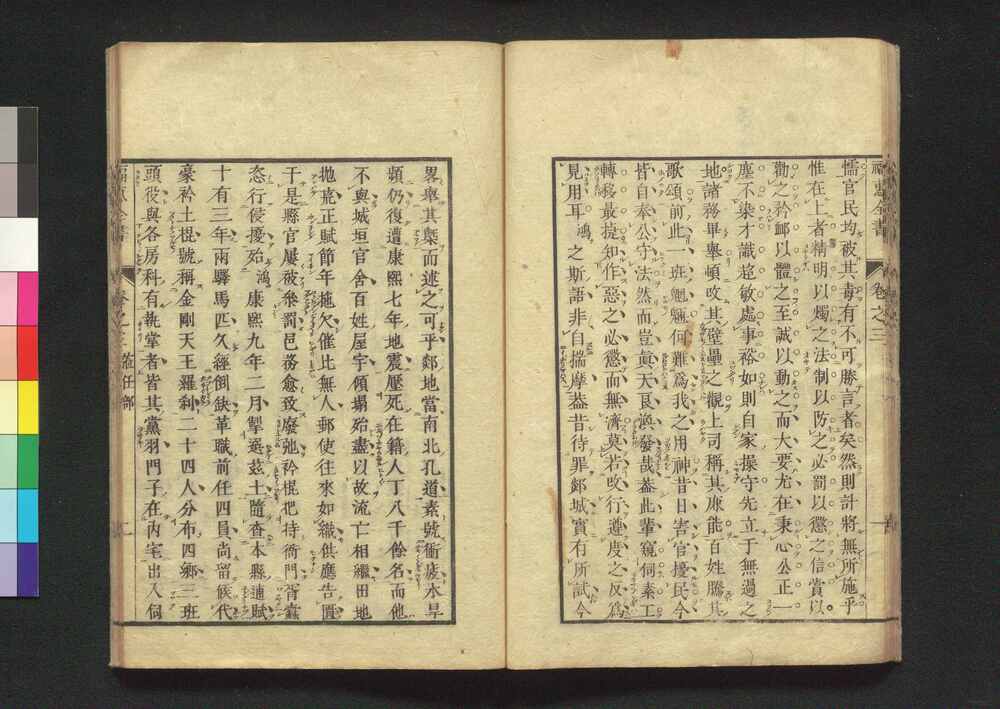 福惠全書 卷之三
懦官民均被其毒有不可勝言者矣然則計將無所施乎
惟在上者精明以燭之法制以防之必罰以懲之信賞以
勸之矜鄙以體之至誠以動之而大要尤在秉心公正一
塵不染才識趁敏處事裕如則自家操守先立于無過之
地諸務畢舉頓改其壁壘之觀上司稱其廉能百姓騰其
歌頌前此一班魍魎何難爲我之用神昔日害官擾民今
皆自奉公守法然而豈眞天良渙發哉葢此輩窺伺素工
轉移最㨗知作惡之必懲而無濟莫若改行遵度之反爲
見用耳鴻之斯語非自揣摩葢昔待罪郯城實有所試今
畧舉其槩而述之可乎郯地當南北孔道素號衝疲水旱
頻仍復遭康熙七年地震壓死在籍人丁八千餘名而他
不與城垣官舍百姓屋宇傾塌殆盡以故流亡相繼田地
拋荒正賦節年拖欠催比無人郵使往來如織供應告匱
于是縣官屢被叅罰邑務愈致廢弛矜棍把持衙門胥蠧
恣行侵擾殆鴻康熙九年二月掣選茲土隨查本縣逋賦
十有三年兩驛馬匹久經倒缺革職前任四員尚留候代
豪衿土棍號稱金剛天王羅刹二十四人分布四鄉三班
頭役與各房科有執掌者皆其黨羽門子在內宅出入伺
福惠全書 卷之三 蒞任部 一